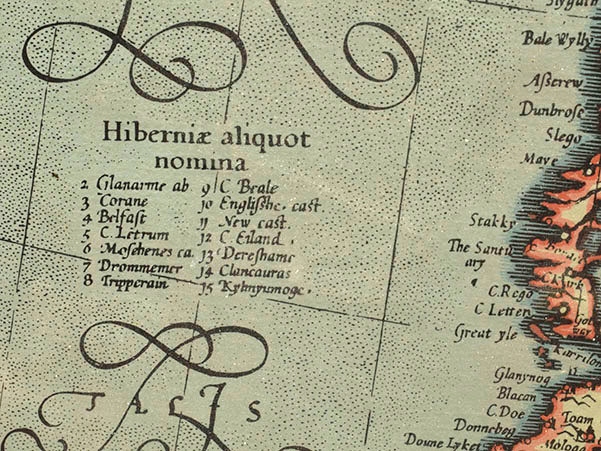 Bale Wylly
Aßcrew
Dunbrose
Slego
Maye
Hiberniæ aliquot
nomina
2 Glanarme ab. 9 C Beale
3 Corane 10 Englishe. cast.
4 Belfast 11 New cast.
5 C. Letrum 12 C. Eiland.
6 Mosehenes ca. 13 Dereshame
7 Drommemer 14 Clancauras
8 Tripperain 15 Kyhnyumoge.
Stakky
The Santu
ary
C.Rego
C Letter
Great yle
Glanynog
Blacan
C.Doe
Toam
Donnebeg
Doune Lyket